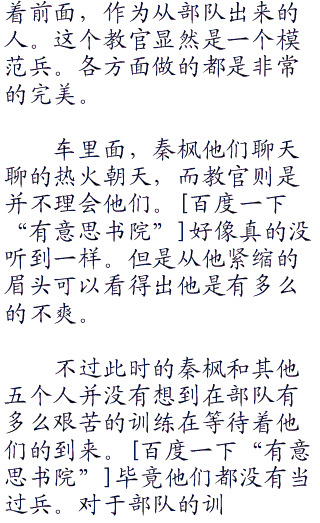 着前面，作为从部队出来的
人。这个教官显然是一个模
范兵。各方面做的都是非常
的完美。
车里面，秦枫他们聊天
聊的热火朝天，而教官则是
并不理会他们。[百度一下
“有意思书院”]好像真的没
听到一样。但是从他紧缩的
眉头可以看得出他是有多么
的不爽。
不过此时的秦枫和其他
五个人并没有想到在部队有
多么艰苦的训练在等待着他
们的到来。[百度一下“有意
思书院”]毕竟他们都没有当
过兵。对于部队的训